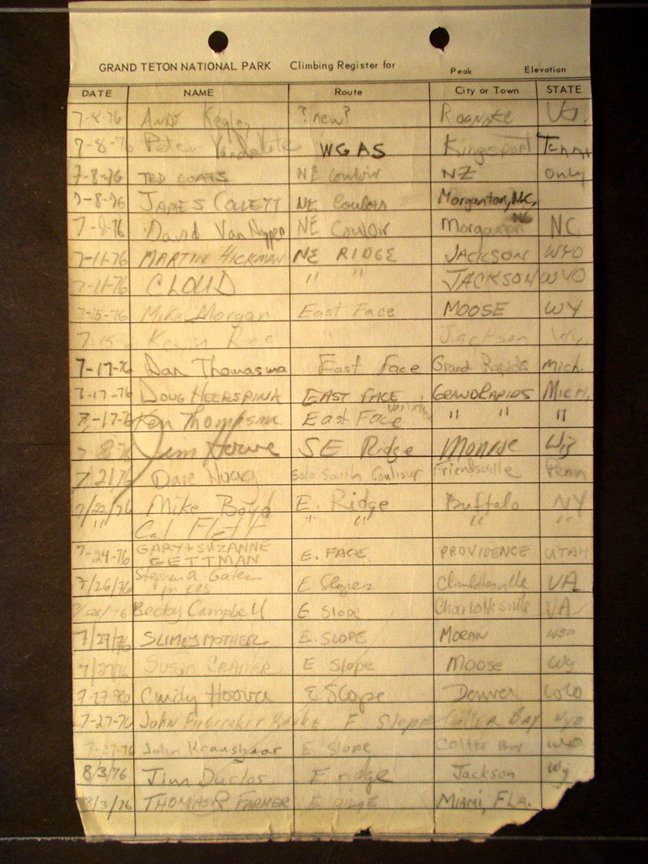 GRAND TETON NATIONAL PARK Climbing Register for Peak Elevation
DATE NAME Route City or Town STATE
7-8-76 Andy ?new? Roanoke Va.
7-8-76 Peter WGAS Kingsport Tenn
7-8-76 TED NE Couloir NZ only
7-8-76 JAMES COLLETT NE Couloir Morganton, NC,
David Van NE Couloir Morganton NC NC
7-11-76 MARTIN HICKMAN NE RIDGE JACKSON WYO
7-11-76 CLOUD " " JACKSON WYO
7-15-76 Mike Morgan East Face MOOSE WY
7-15-76 Kevin " Jackson Wy
7-17-76 Dan Thomasma East Face Grand Rapids Mich.
7-17-76 DOUG HEERSPINK EAST FACE GRAND RAPIDS MICH.
7-17-76 Ken Thomasma East Face " " "
Jim Howe SE Ridge Monroe Wis
7/21/76 Dave Solo South Couloir Friendsville Tenn
7/22/76 Mike Boyd E. Ridge Buffalo NY
" Cal Flett " " " "
7-24-76 GARY + SUZANNE GETTMAN E. FACE PROVIDENCE UTAH
7/26/76 Stephen A. Gates E Slopes Charlottesville VA
7/26/76 Becky Campbell E Slope Charlottesville VA
7/27/76 SLIMEYMOTHER E. SLOPE MORAN WYO
7/27/76 Susan E Slope Moose Wy
Cindy Hoover E Slope Denver Colo
7-27-76 John Firecracker E Slope Colter Bay Wyo
7-27-76 John Kraushaar E Slope Colter Bay Wyo
8/3/76 Jim Duclos E ridge Jackson Wy
8/3/76 THOMAS R FARMER E RIDGE MIAMI, FLA.